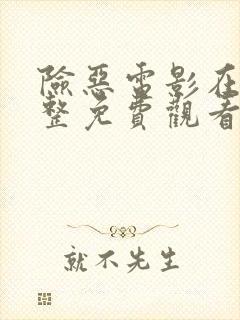 險惡電影在
整免費觀看
就不先生